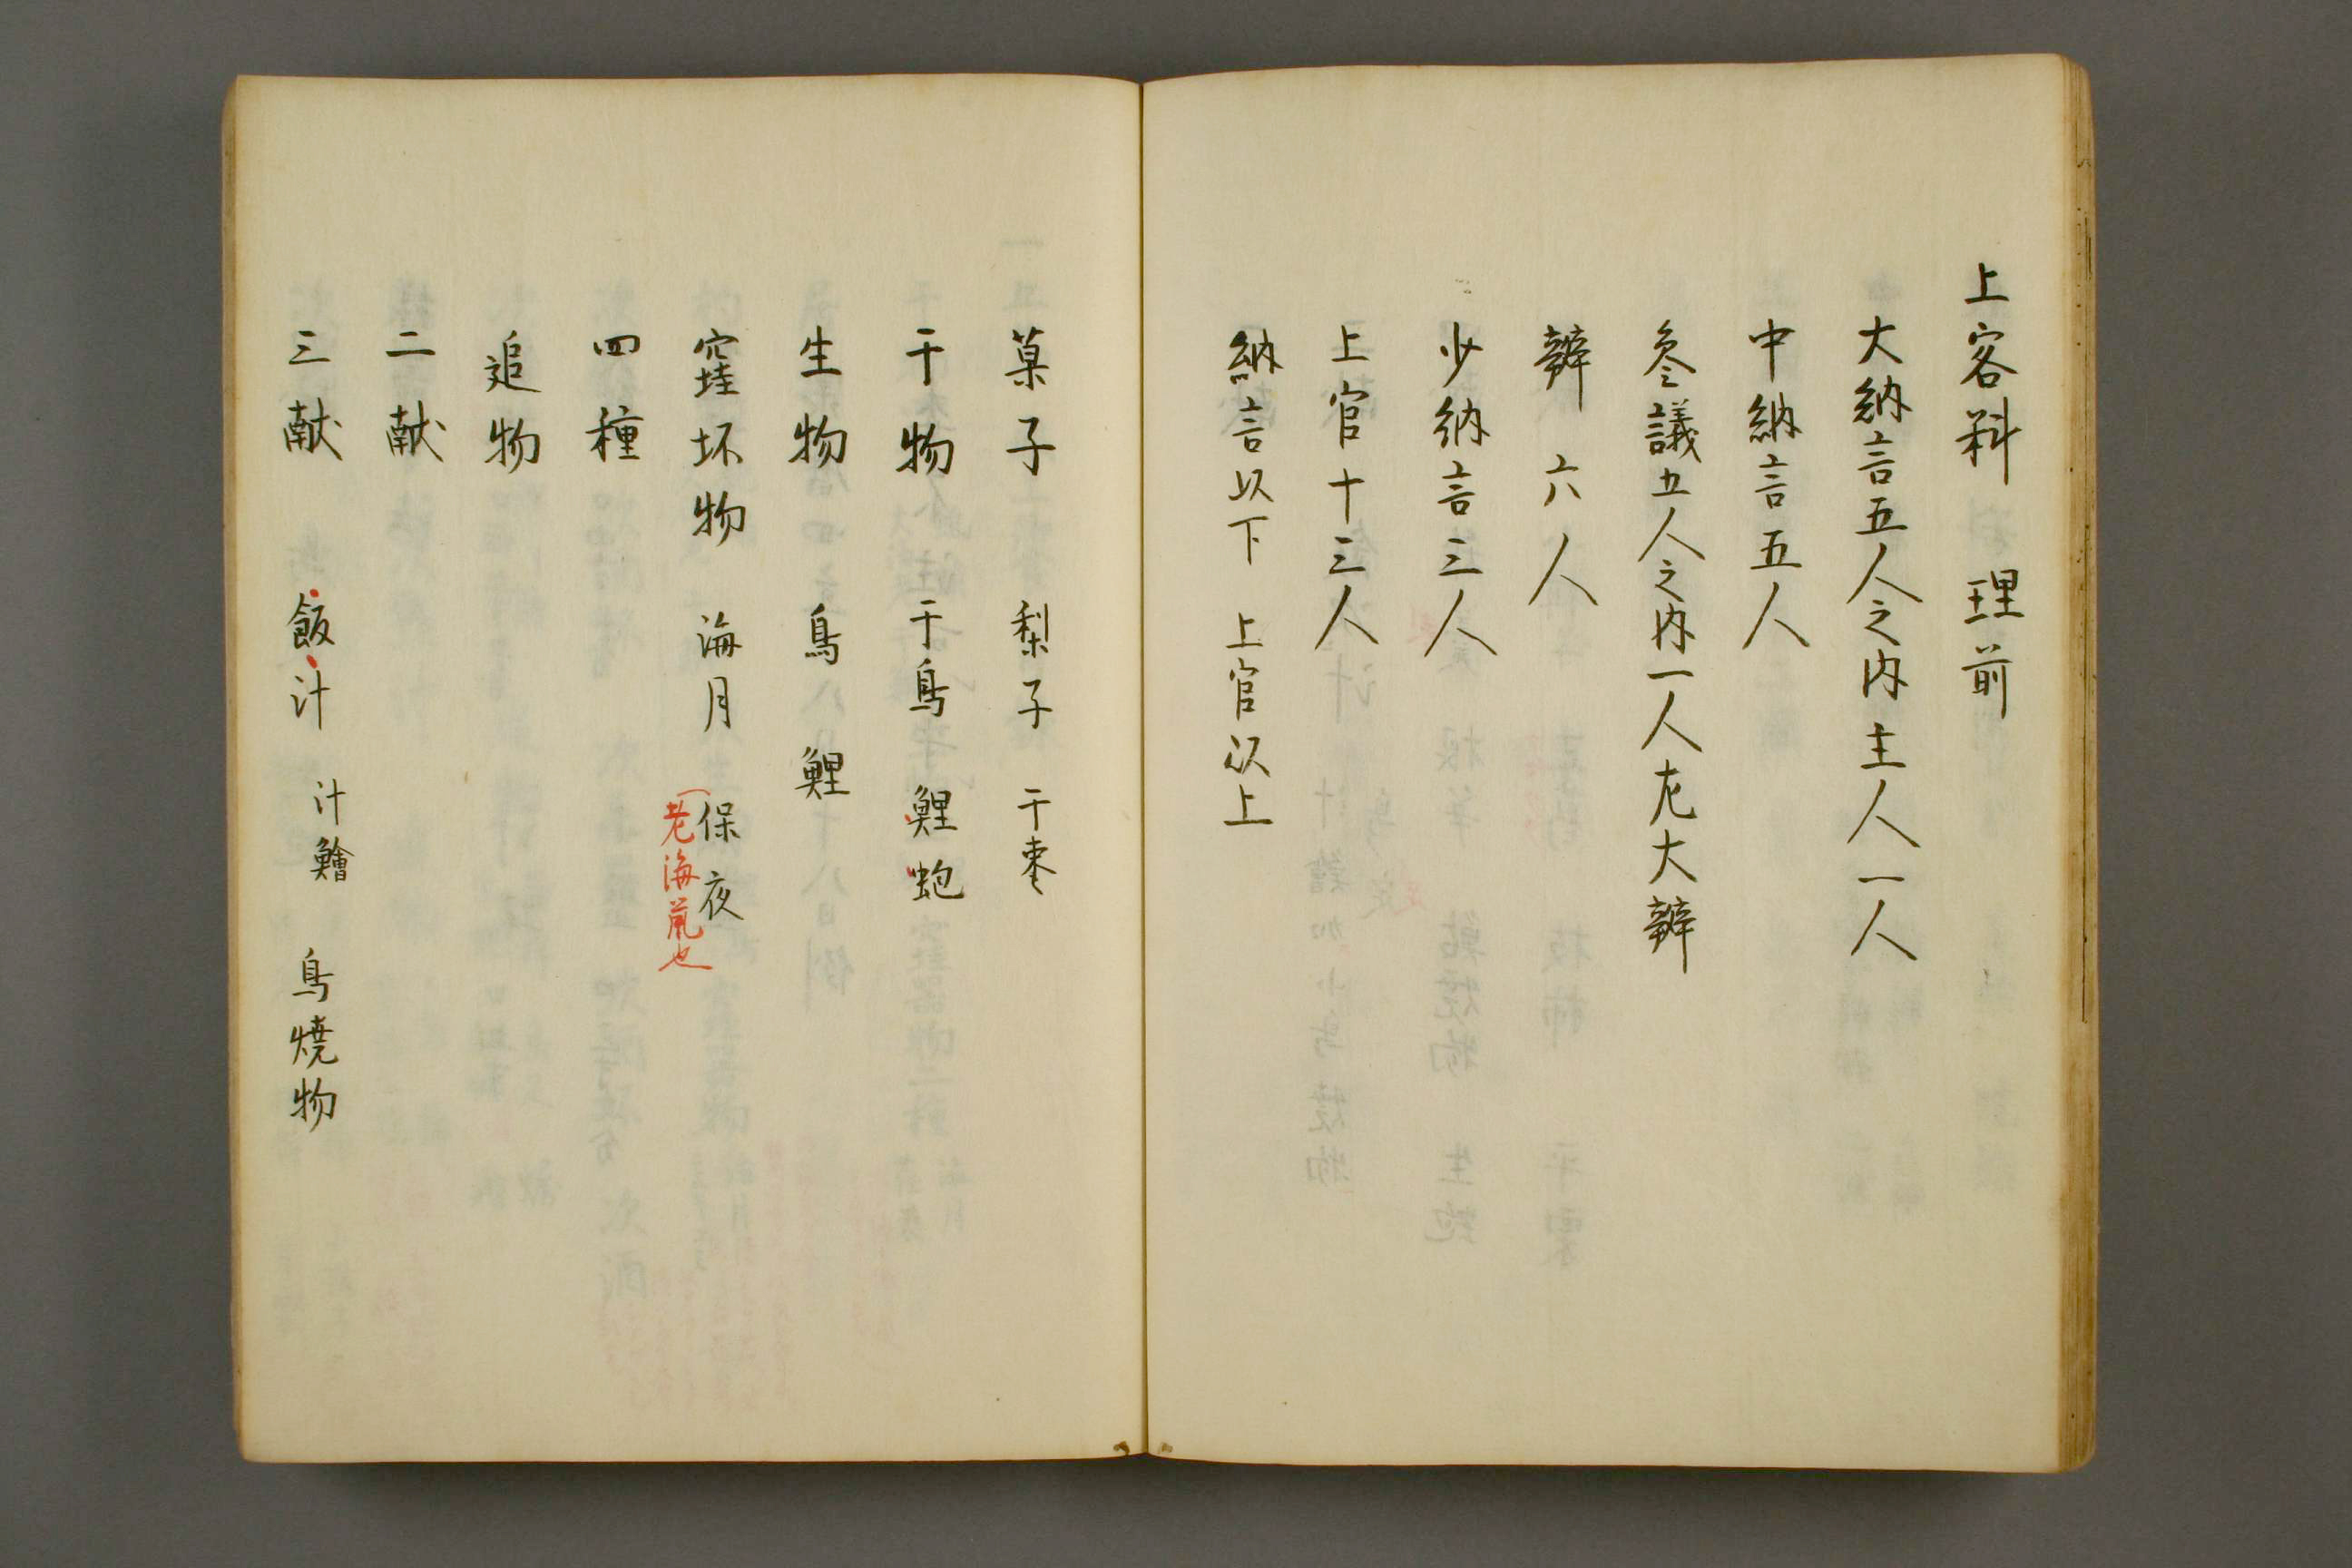 上客料理前
大納言五人之内主人一人
中納言五人
参議五人之内一人左大辨
辨六人
少納言三人
上官十三人
納言以下 上官以上
菓子 梨子 干棗
干物 干鳥 鯉 蚫
生物 鳥 鯉
窪坏物 海月 保夜
老海鼠也
四種
追物
二献
三献 飯汁 汁鱠 鳥焼物